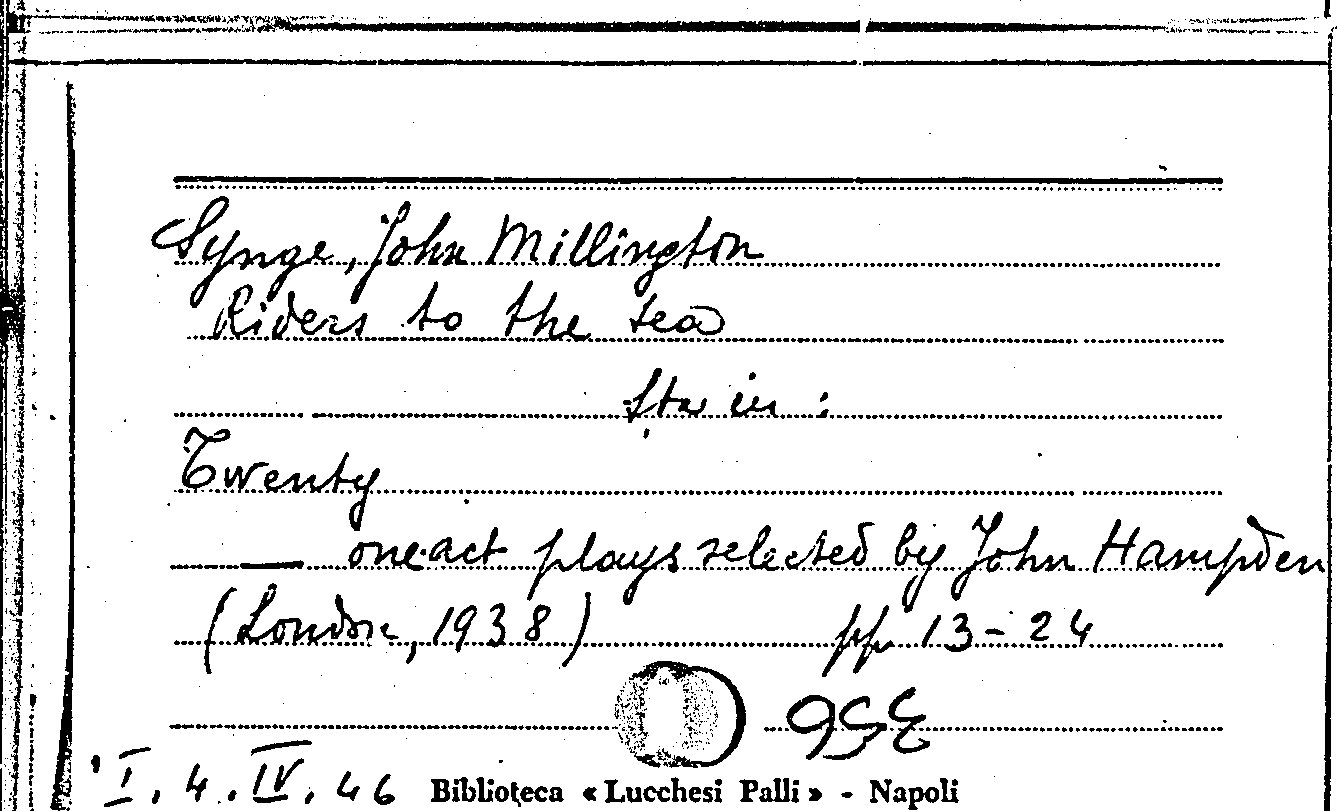 Synge, John Millington
Riders to the sea
Sta in :
Twenty
— one-act plays selected by John Hampden
(London, 1938) pp. 13-24
I. 4. IV. 46 Biblioteca « Lucchesi Palli » - Napoli